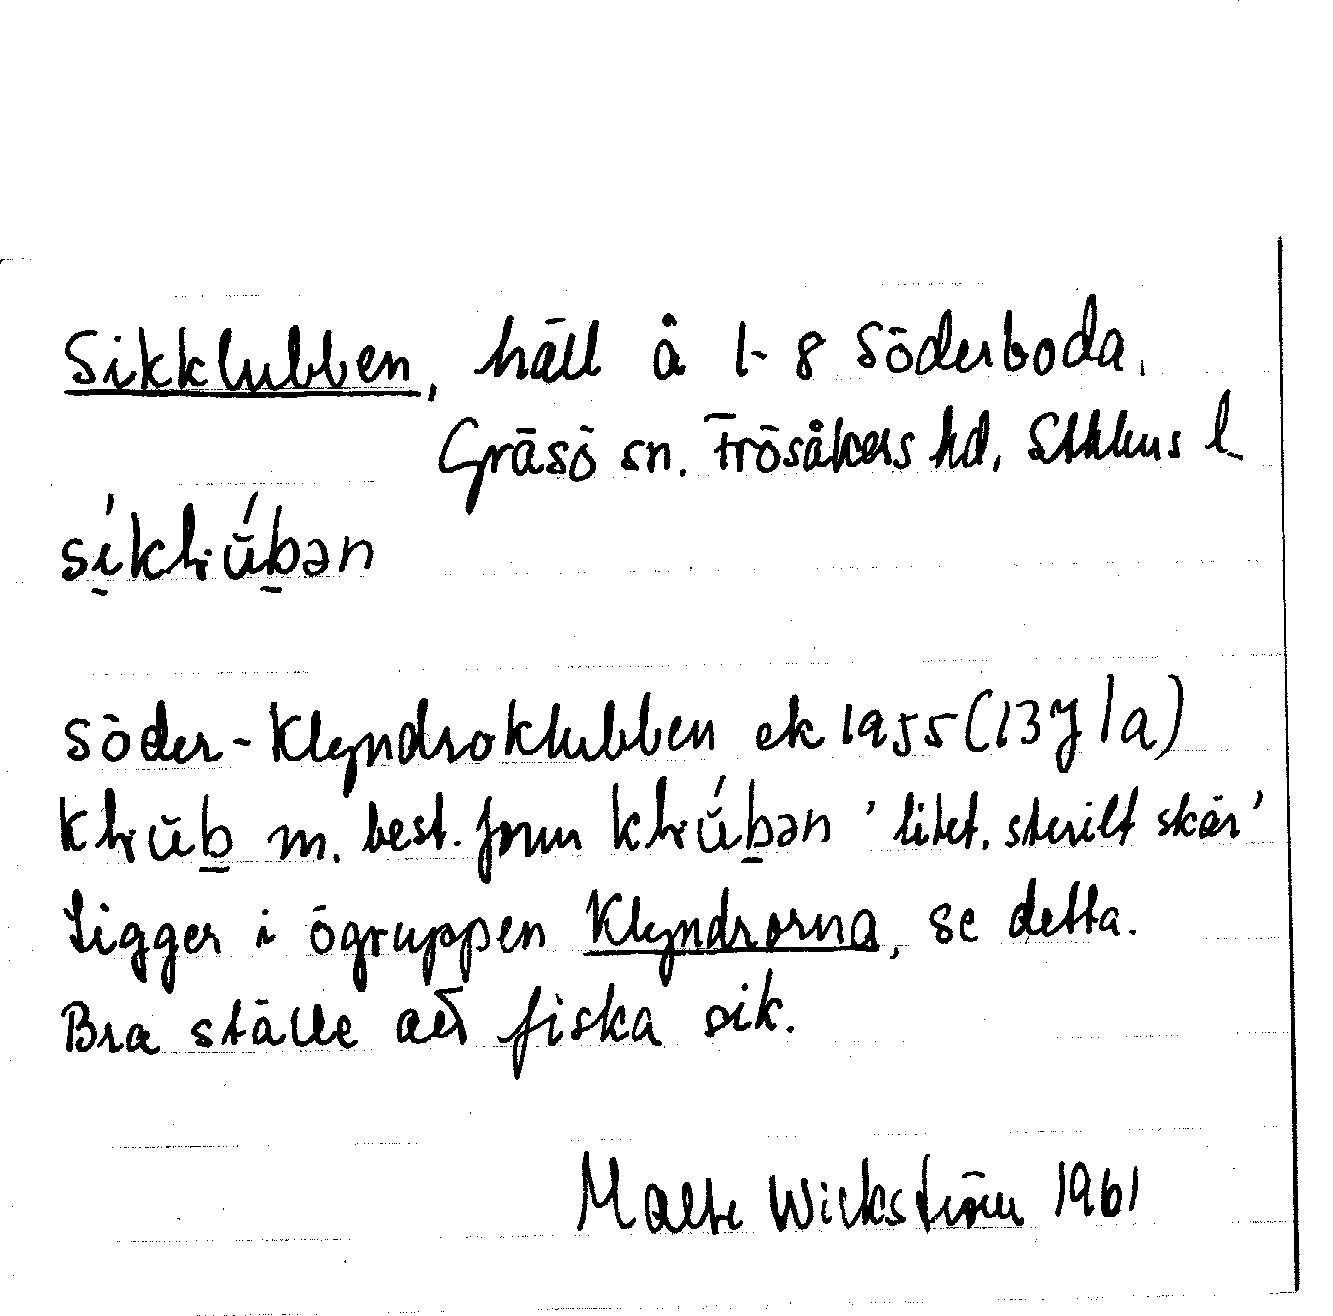 Sikklubben, häll å 1-8 Söderboda.
Gräsö sn. Frösåkers hd, Sthlms l
Söder-Klyndroklubben ek 1955 (13J 1a)
m. best. form 'litet, sterilt skär'
Ligger i ögruppen Klyndrorna, se detta.
Bra ställe att fiska sik.
Malte Wickström 1961